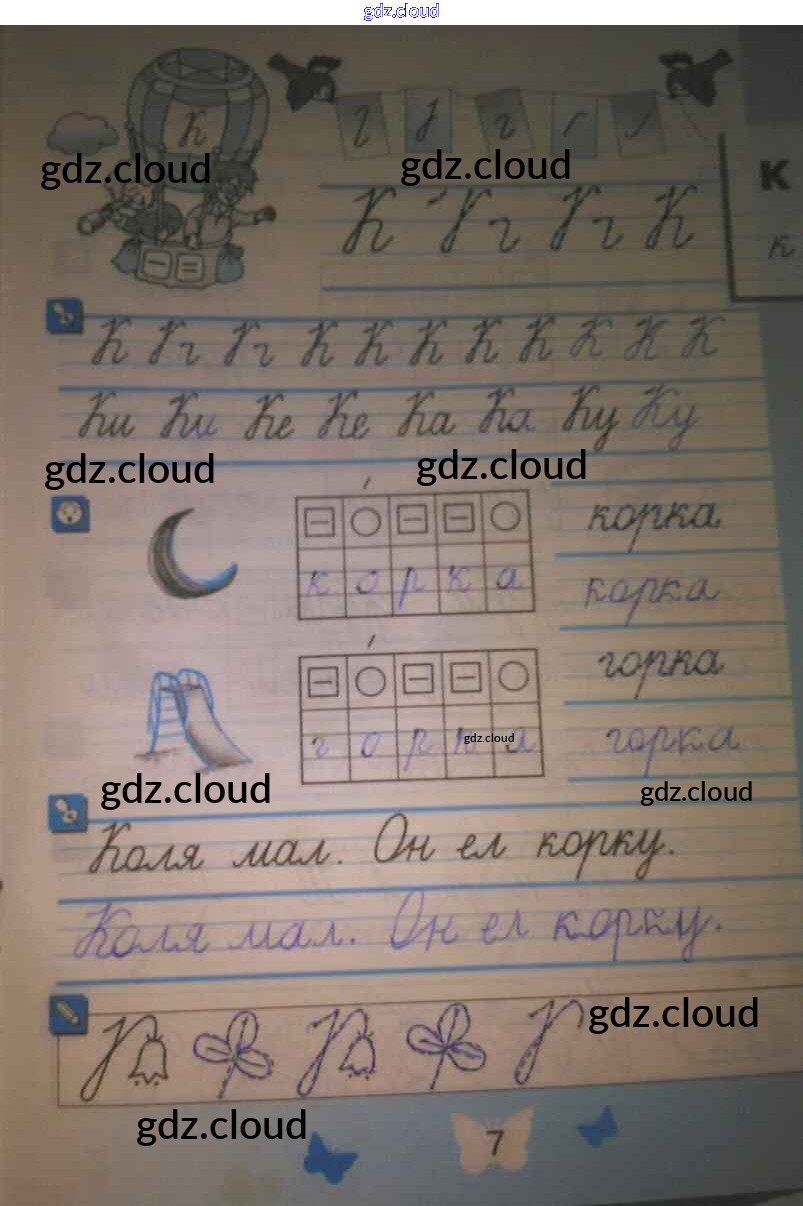 gdz.cloud
К
К
к
gdz.cloud gdz.cloud
К К
К К К К К К К К К
Ки Ки Ке Ке Ка Ка Ку Ку
gdz.cloud gdz.cloud
корка
к о р к а
корка
горка
г о р к а
gdz.cloud
горка
gdz.cloud gdz.cloud
Коля мал. Он ел корку.
Коля мал. Он ел корку.
gdz.cloud
gdz.cloud
7